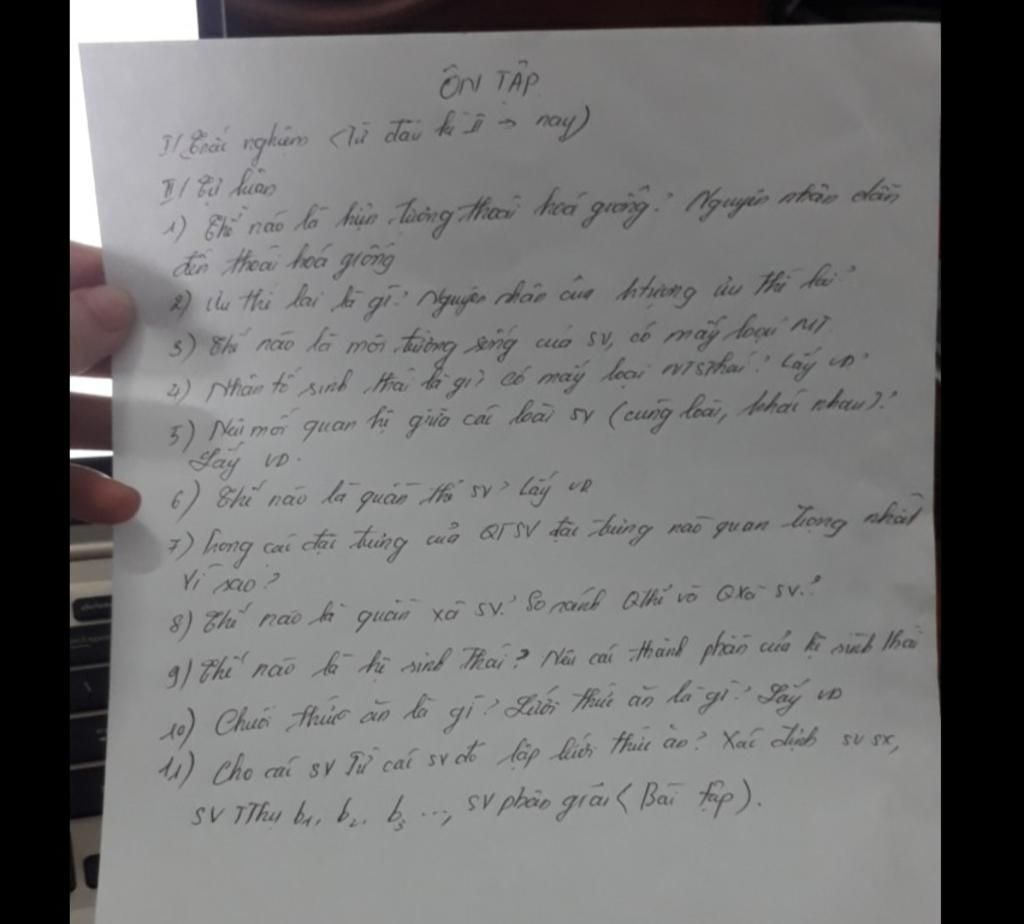 ÔN TẬP
I/ Trắc nghiệm (Từ đầu kì II → nay)
II/ Tự luận
1) Thế nào là hiện tượng thoái hoá giống? Nguyên nhân dẫn
đến thoái hoá giống
2) Ưu thế lai là gì? Nguyên nhân của htượng ưu thế lai?
3) Thế nào là môi trường sống của SV, có mấy loại MT.
4) Nhân tố sinh thái là gì? Có mấy loại NTSThái? Lấy VD?
5) Nêu mối quan hệ giữa các loài SV (cùng loài, khác nhau)?
Lấy VD.
6) Thế nào là quần thể SV? Lấy VD
7) Trong các đặc trưng của QTSV đặc trưng nào quan trọng nhất
Vì sao?
8) Thế nào là quần xã SV? So sánh QThể và QXã SV?
9) Thế nào là hệ sinh Thái? Nêu các thành phần của hệ sinh thái
10) Chuỗi thức ăn là gì? Lưới thức ăn là gì? Lấy VD
11) Cho các SV Từ các SV đó lập lưới thức ăn? Xác định SVSX,
SV TThụ b1, b2, b3 ..., SV phân giải (Bài tập).